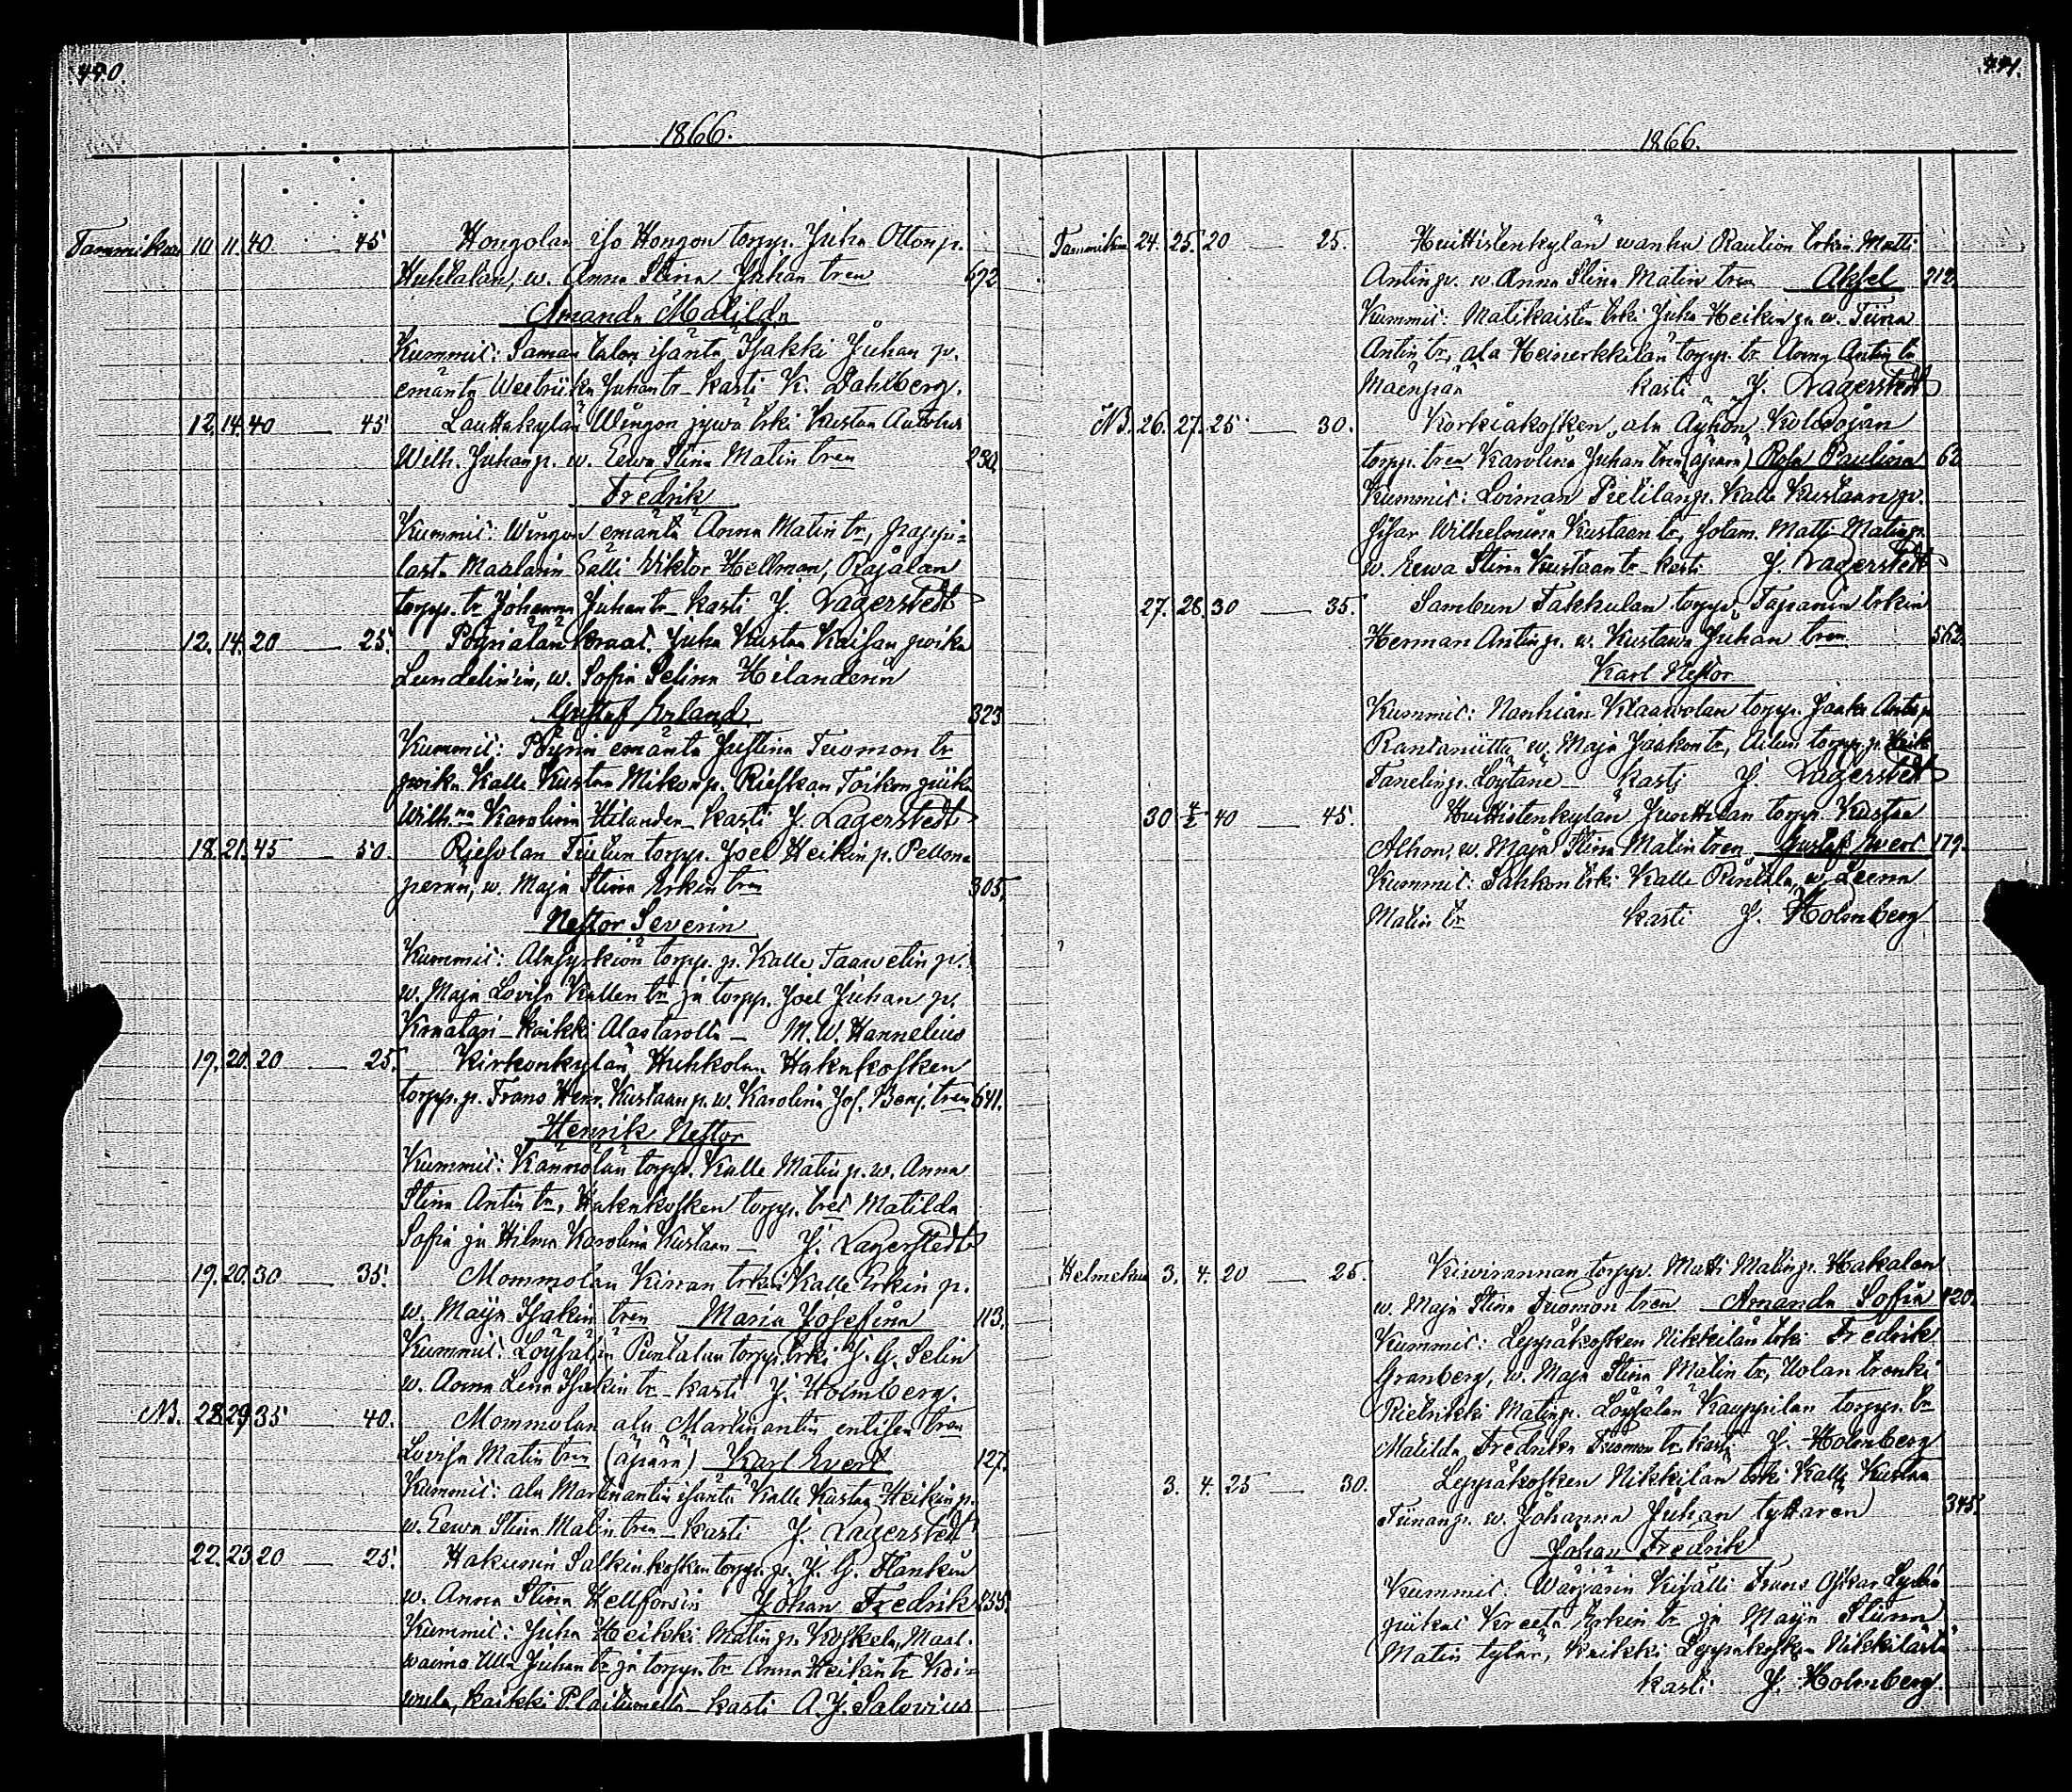 440.
1866.
Tammikuu 10. 11. 40 — 45 Hongolan iso Hongon torpp. Juha Otton p.
Huhtalan, w. Anna Stina Juhan tren 672
Amanda Matilda
Kummit: Saman talon isäntä Isakki Juhan p.
emäntä Juhan tr kasti K. Dahlberg.
12. 14. 40 — 45 Lauttakylän Wängon jywä trki Kustaa Autolus
Wilh. Juhan p. w. Eewa Stina Matin tren 230.
Fredrik
Kummit: Wängon emäntä Anna Matin tr, pappi-
lasta Maalarin Sälli Wiktor Hellman, Rajalan
torpp. tr Johanna Juhan tr kasti J. Lagerstedt
12. 14. 20 — 25. Juha Kustaa
Lundelinin, w. Sofia Selina Hilanderin
Gustaf Erland 323
Kummit: emäntä Justina Tuomon tr
Kalle Kustaa Mikon p. Rieskan Toikon piika
Wilh.na Karolina Hilander kasti J. Lagerstedt
18. 21. 45 — 50. Riesolan torpp. Joel Heikin p. Pellon-
perän, w. Maja Stina Erkin tren 305.
Nestor Severin
Kummit: torpp. p. Kalle Taawetin p.
w. Maja Lovisa Kallen tr ja torpp. Joel Juhan p.
kaikki Alastarolta — M. W. Hannelius
19. 20. 20 — 25. Kirkonkylän Huhkolan Hakukosken
torpp. p. Frans Henr. Kustaan p. w. Karolina Jos. Benj. tren 641.
Henrik Nestor
Kummit: Kännölän torpp. Kalle Matin p. w. Anna
Stina Antin tr, Hakukosken torpp. tret Matilda
Sofia ja Hilma Karolina Kustaan — J. Lagerstedt
19. 20. 30 — 35. Mommolan Kirran trkin Kalle Erkin p.
w. Maija Isakin tren Maria Josefina 113.
Kummit: Löysälän Puntalan torpp. trki J. G. Selin
w. Anna Lena Isakin tr kasti J. Holmberg.
NB. 28. 29. 35 — 40. Mommolan ala Martinantin entisen tren
Lovisa Matin tren (äpärä) Karl Evert 127.
Kummit: ala Martinantin isäntä Kalle Kustaa Heikin p.
w. Eewa Stina Matin tren kasti J. Lagerstedt
22. 23. 20 — 25. Hakunin Salkinkosken torpp. p. J. G.
w. Anna Stina Hellforsin Johan Fredrik 255.
Kummit: Juha Heikki Matin p. Koskela, Maal.
waimo Ulla Juhan tr ja torpp. tr Anna Heikin tr Koi-
wula, kaikki P.laitumelta kasti A. J. Salovius
441.
1866.
Tammikuu 24. 25. 20 — 25. Huittistenkylän wanha Raulion trkin Matti
Antin p. w. Anna Stina Matin tren Aksel 212.
Kummit: Matikaisten trki Juha Heikin p. w. Tiina
Antin tr, ala Heinerkkilän torpp. tr Anna Antin tr
Mäenpää kasti J. Lagerstedt
NB. 26. 27. 25 — 30. Korkiakosken, ala Äyhön Kolisojan
torpp. tren Karolina Juhan tren (äpärä) Rosa Paulina 62
Kummit: Loiman Pietilän p. Kalle Kustaan p.
sisar Wilhelmina Kustaan tr, sotam. Matti Matin p.
w. Eewa Stina Kustaan tr kasti J. Lagerstedt
27. 28. 30 — 35. Sambun Takkulan torpp. Tapanin trkin
Herman Antin p. w. Kustawa Juhan tren 562.
Karl Nestor
Kummit: Nanhian Klaawolan torpp. Jaakko Antin p.
Rantaniittu w. Maja Jaakon tr, torpp. p. Heikki
Tanelin p. Löytäne — kasti J. Lagerstedt
30. 4/2 40 — 45. Huittistenkylän Junttilan torpp. Kustaa
Alhon, w. Maja Stina Matin tren Gustaf Evert 179.
Kummit: Sahkon trki Kalle Rintala, w. Leena
Matin tr kasti J. Holmberg
Helmekuu 3. 4. 20 — 25. Kiwirannan torpp. Matti Matin p. Hakalan
w. Maja Stina Tuomon tren Amanda Sofia 420.
Kummit: Leppäkosken Nikkilän trki Fredrik
Granberg, w. Maja Stina Matin tr, Uolan trenki
Pietrikki Matin p. Löysälän Kauppilan torpp. tr
Matilda Fredrika Tuomon tr kasti J. Holmberg
3. 4. 25 — 30. Leppäkosken Nikkilän trki Kalle Kustaa
Tiinan p. w. Johanna Juhan tyttären 345.
Johan Fredrik
Kummit: Wärjärin Kisälli Frans Oskar
piikat Kreeta Erkin tr ja Maija Stiina
Matin tytär, kaikki Leppäkosken Nikkilästä
kasti J. Holmberg.